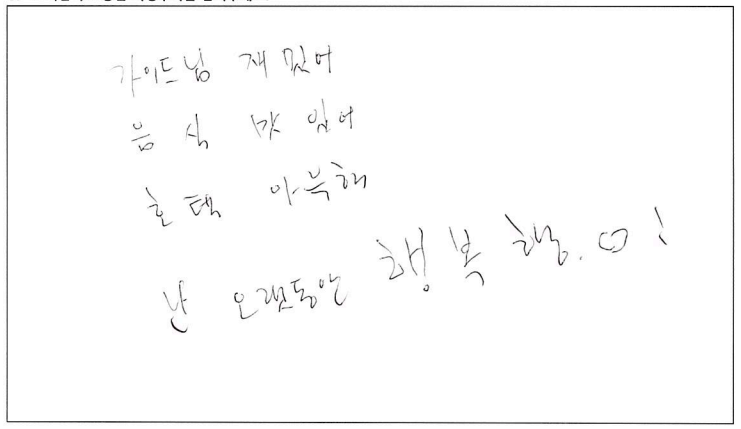 가이드님 재밌어
음식 맛있어
호텔 아늑해
난 오랫동안 행복해. ♡!